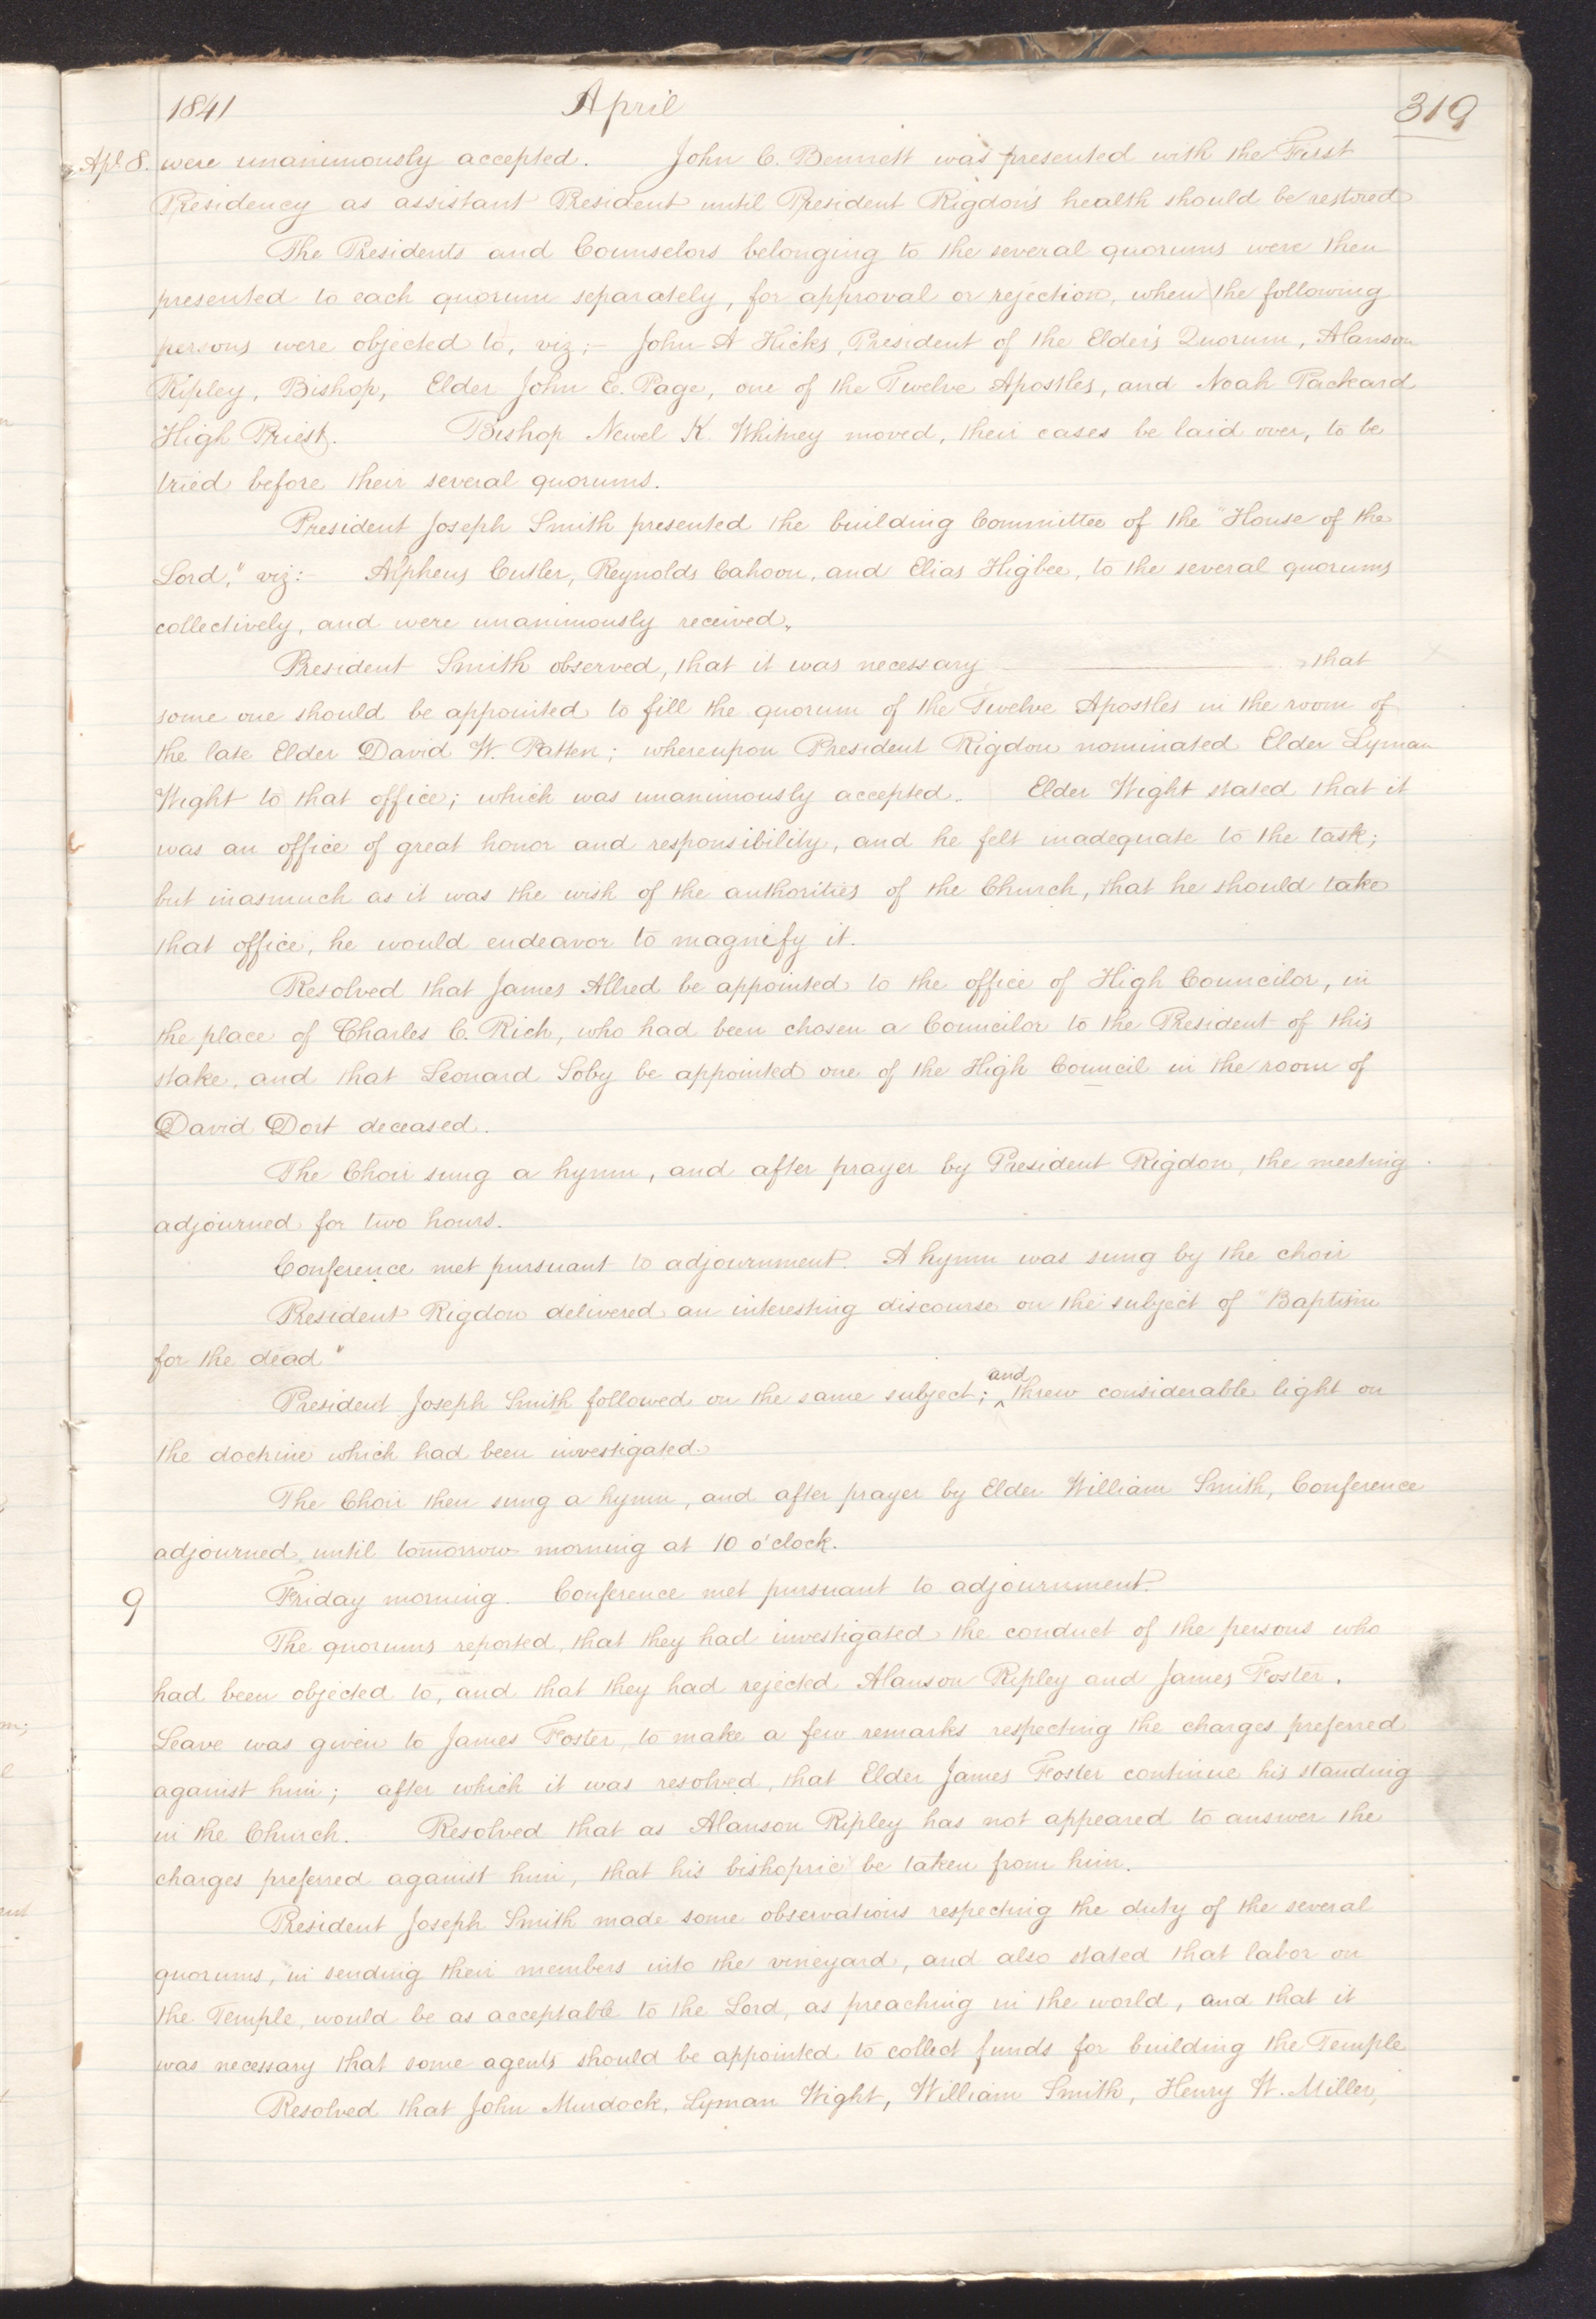 1841 April 319
Apl. 8. were unanimously accepted. John C. Bennett was presented with the First
Presidency as assistant President until President Rigdon's health should be restored
The Presidents and Counselors belonging to the several quorums were then
presented to each quorum separately, for approval or rejection, when the following
persons were objected to, viz;— John A Hicks, President of the Elder's Quorum, Alanson
Ripley, Bishop, Elder John E. Page, one of the Twelve Apostles, and Noah Packard
High Priest. Bishop Newel K. Whitney moved, their cases be laid over, to be
tried before their several quorums.
President Joseph Smith presented the building Committee of the "House of the
Lord," viz: Alpheus Cutler, Reynolds Cahoon, and Elias Higbee, to the several quorums
collectively, and were unanimously received.
President Smith observed, that it was necessary ——— that
some one should be appointed to fill the quorum of the Twelve Apostles in the room of
the late Elder David W. Patten; whereupon President Rigdon nominated Elder Lyman
Wight to that office; which was unanimously accepted. Elder Wight stated that it
was an office of great honor and responsibility, and he felt inadequate to the task;
but inasmuch as it was the wish of the authorities of the Church, that he should take
that office, he would endeavor to magnify it.
Resolved that James Allred be appointed to the office of High Councilor, in
the place of Charles C. Rich, who had been chosen a Councilor to the President of this
stake, and that Leonard Soby be appointed one of the High Council in the room of
David Dort deceased.
The Choir sung a hymn, and after prayer by President Rigdon, the meeting
adjourned for two hours.
Conference met pursuant to adjournment. A hymn was sung by the choir
President Rigdon delivered an interesting discourse on the subject of "Baptism
for the dead"
President Joseph Smith followed on the same subject; and threw considerable light on
the doctrine which had been investigated.
The Choir then sung a hymn, and after prayer by Elder William Smith, Conference
adjourned until tomorrow morning at 10 o'clock.
9 Friday morning. Conference met pursuant to adjournment.
The quorums reported, that they had investigated the conduct of the persons who
had been objected to, and that they had rejected Alanson Ripley and James Foster.
Leave was given to James Foster, to make a few remarks respecting the charges preferred
against him; after which it was resolved, that Elder James Foster continue his standing
in the Church. Resolved that as Alanson Ripley has not appeared to answer the
charges preferred against him, that his bishopric be taken from him.
President Joseph Smith made some observations respecting the duty of the several
quorums, "in sending their members into the vineyard, and also stated that labor on
the Temple, would be as acceptable to the Lord, as preaching in the world, and that it
was necessary that some agents should be appointed to collect funds for building the Temple
Resolved that John Murdock, Lyman Wight, William Smith, Henry W. Miller,